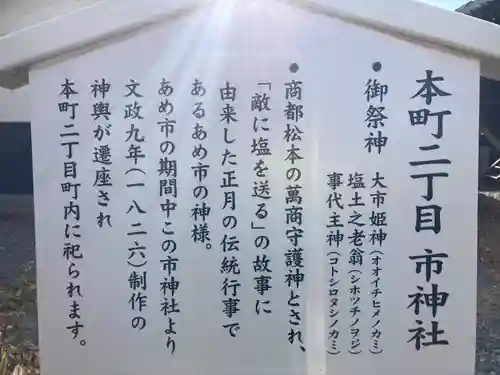 本町二丁目 市神社
●御祭神 大市姫神(オオイチヒメノカミ)
塩土之老翁(シホツチノヲジ)
事代主神(コトシロヌシノカミ)
●商都松本の萬商守護神とされ、
「敵に塩を送る」の故事に
由来した正月の伝統行事で
あるあめ市の神様。
あめ市の期間中この市神社より
文政九年(一八二六)制作の
神輿が遷座され
本町二丁目町内に祀られます。